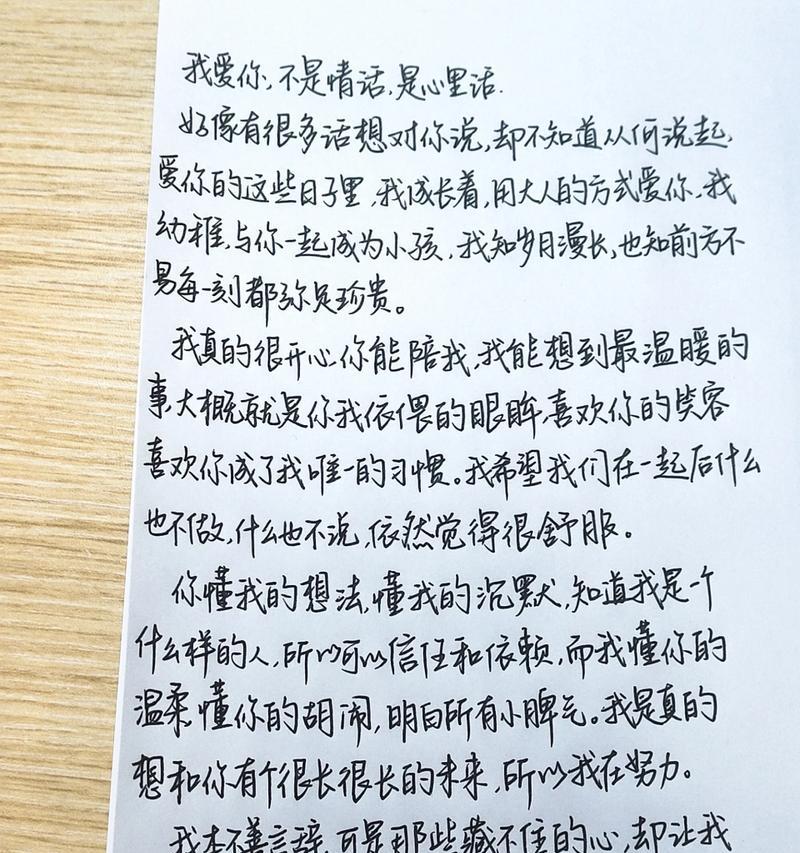 我爱你,不是情话,是心里话.
好像有很多话想对你说,却不知道从何说起,
爱你的这些日子里,我成长着,用大人的方式爱你,我
幼稚,与你一起成为小孩,我知岁月漫长,也知前方不
易每一刻都弥足珍贵。
我真的很开心,你能陪我,我能想到最温暖的
事,大概就是你我依偎的眼眸,喜欢你的笑容
喜欢你成了我唯一的习惯。我希望我们在一起后什么
也不做,什么也不说,依然觉得很舒服。
你懂我的想法,懂我的沉默,知道我是一个
什么样的人,所以可以信任和依赖,而我懂你的
温柔,懂你的胡闹,明白所有小脾气。我是真的
想和你有个很长很长的未来,所以我在努力。
我本不善言辞,可是那些藏不住的心,却让我